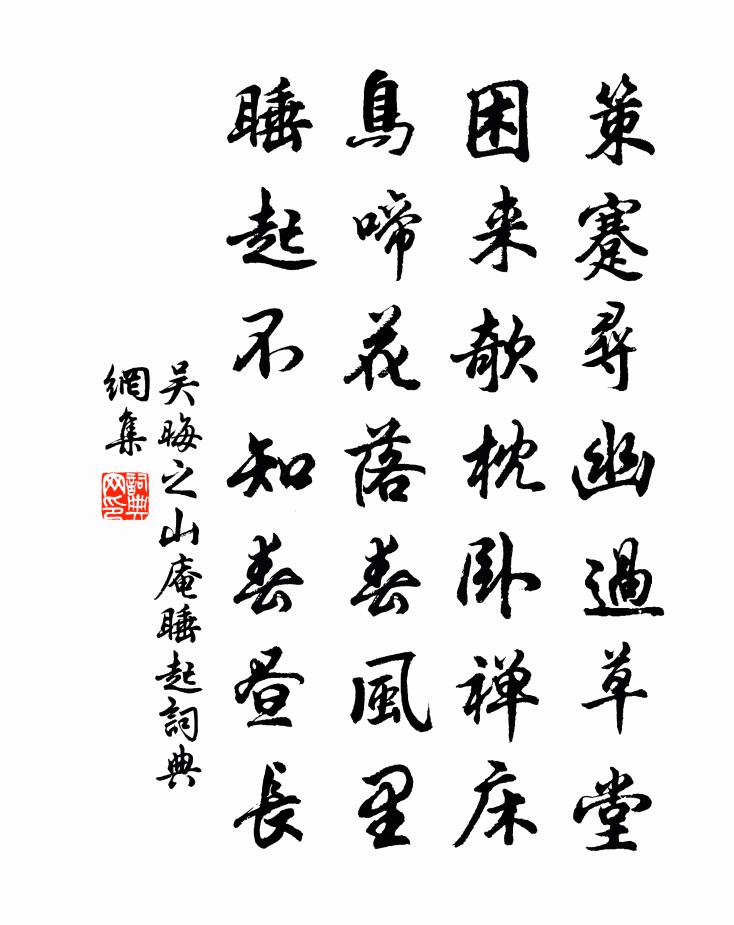 策蹇尋幽過草堂
困来欹枕卧禅床
鳥啼花落春風里
睡起不知春昼長
吴晦之山庵睡起詞典
網集
詞典網印